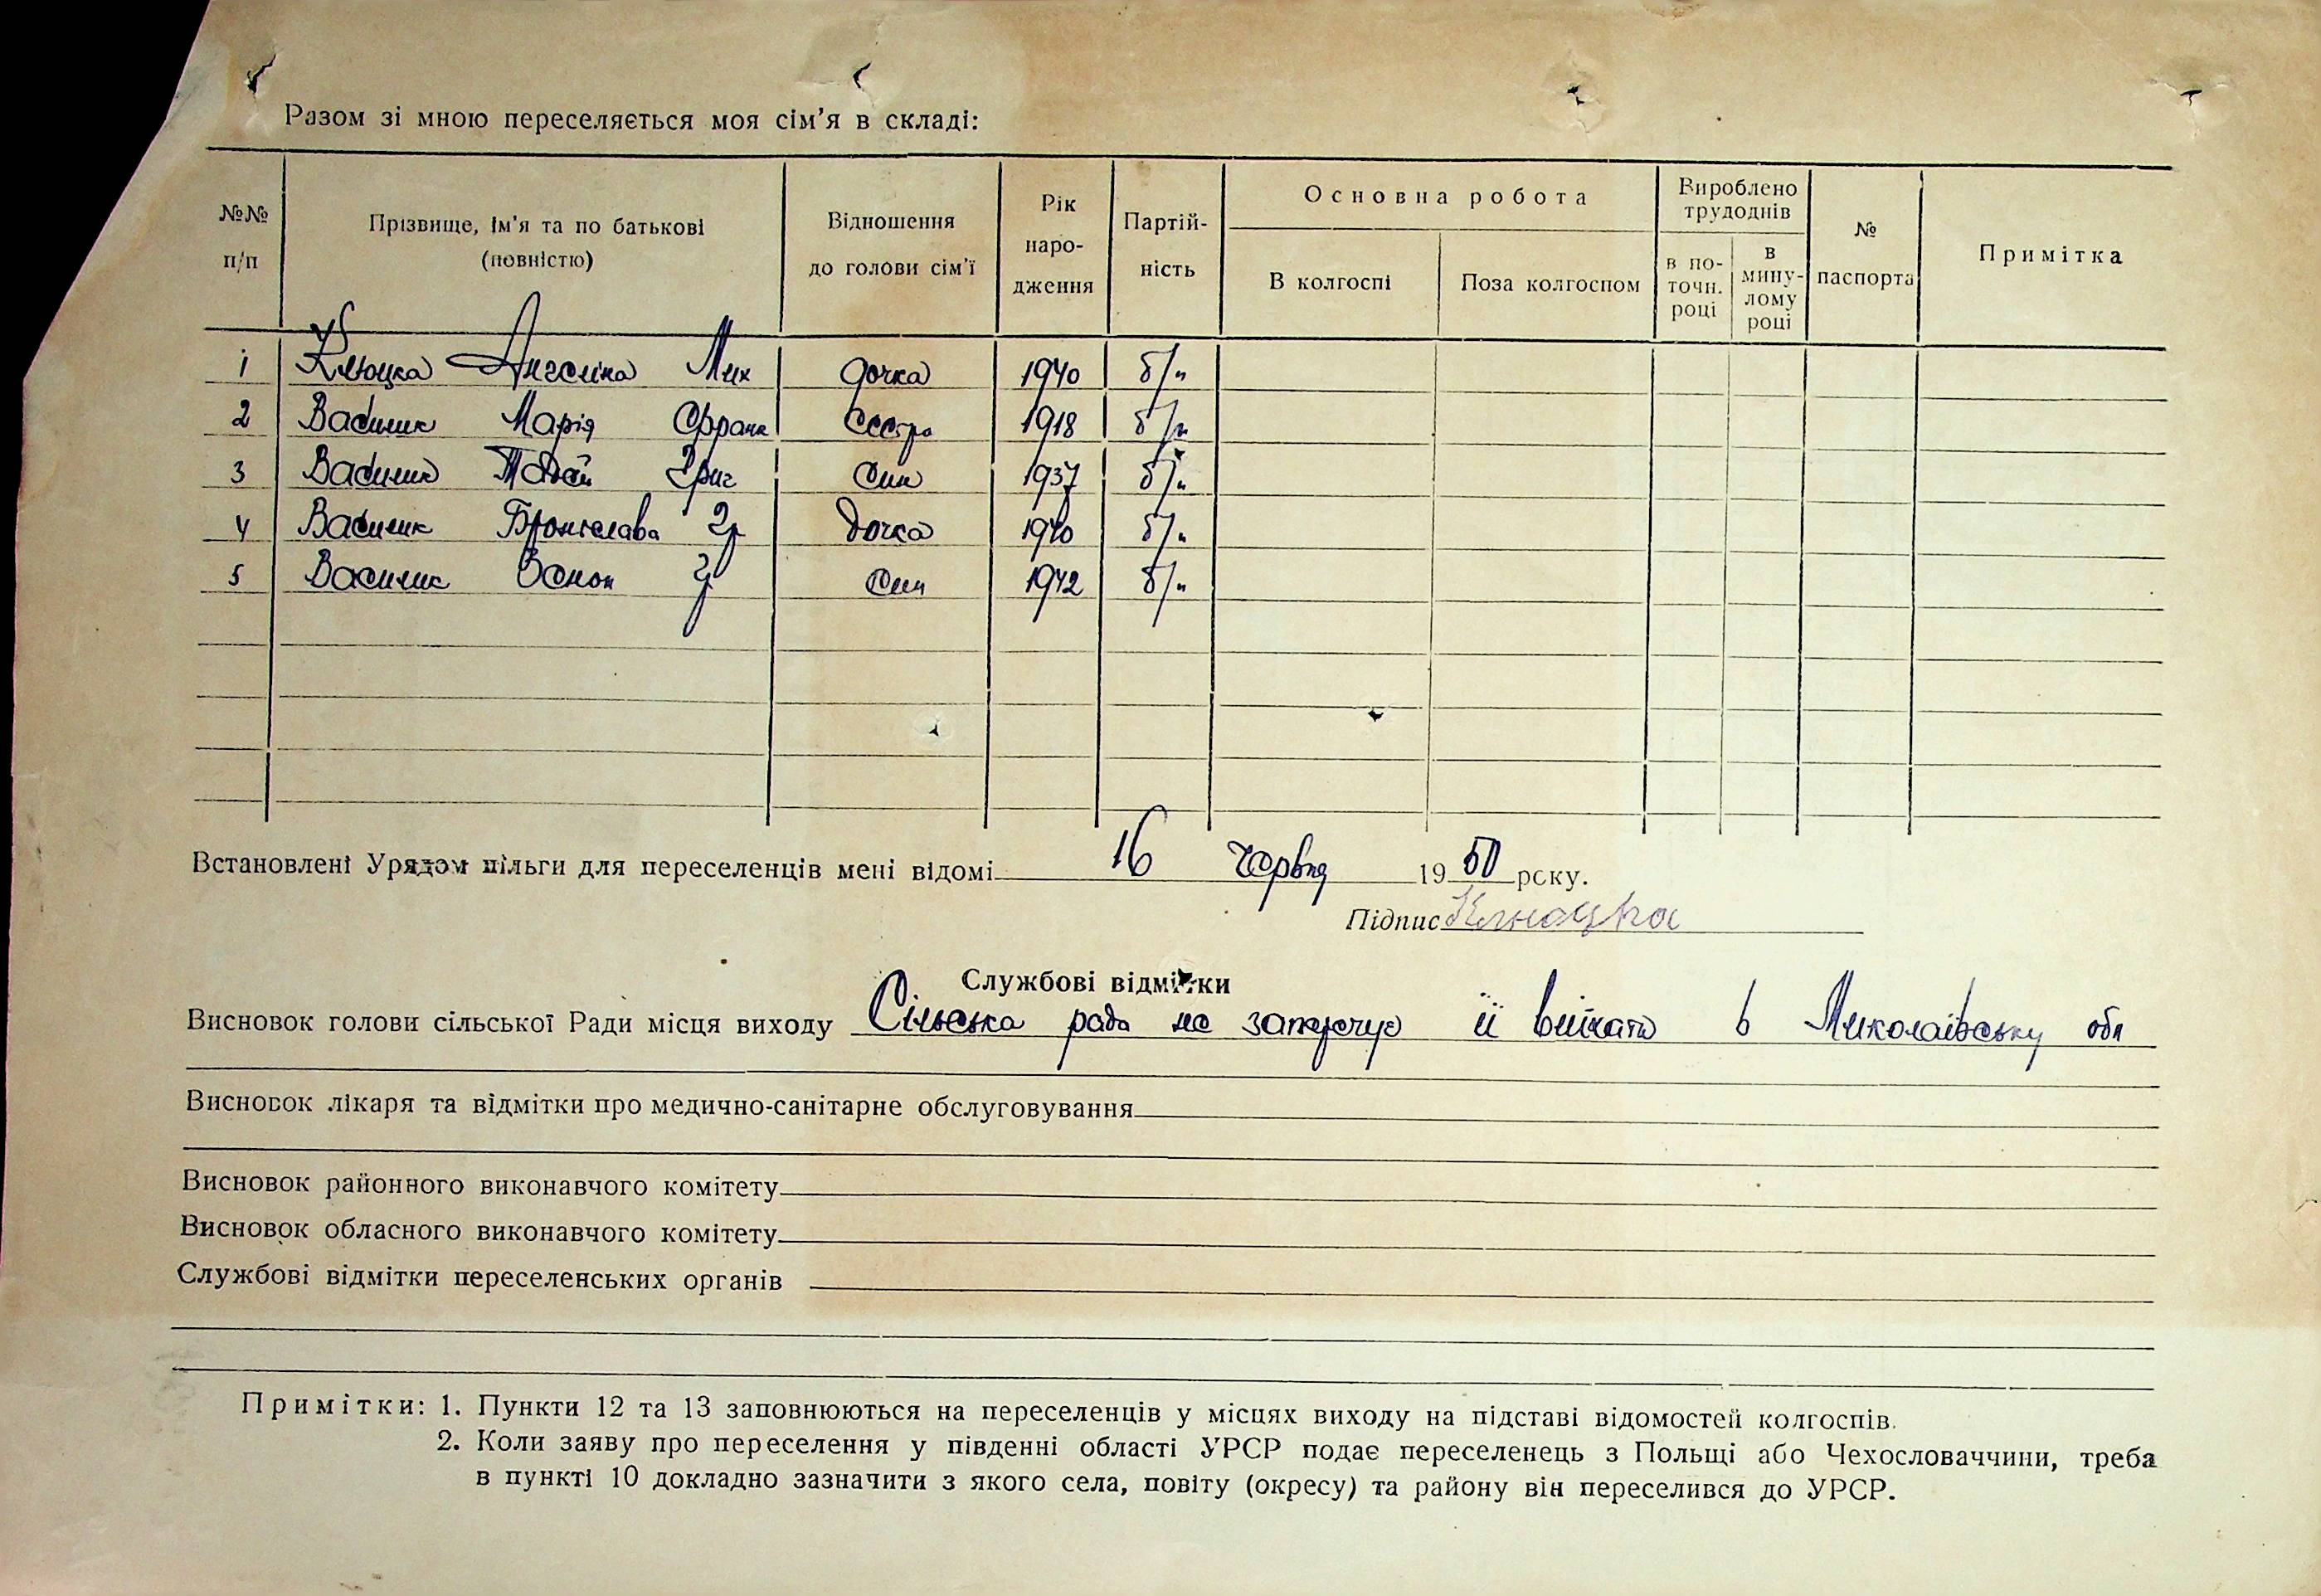 Разом зі мною переселяється моя сім'я в складі:
№№ п/п
Прізвище, ім'я та по батькові (повністю)
Відношення до голови сім'ї
Рік народження
Партійність
Основна робота
В колгоспі
Поза колгоспом
Вироблено трудоднів
в поточн. році
в минулому році
№ паспорта
Примітка
1 Клюцка Ангеліна Мих дочка 1940 б/п
2 Василик Марія Франк сестра 1918 б/п
3 Василик Тадей Григ син 1937 б/п
4 Василик Броніслава Гр дочка 1940 б/п
5 Василик Зенон Гр син 1942 б/п
Встановлені Урядом пільги для переселенців мені відомі 16 червня 1950 року.
Підпис Клюацка
Службові відмітки
Висновок голови сільської Ради місця виходу Сільська рада не заперечує її виїхати в Миколаївську обл
Висновок лікаря та відмітки про медично-санітарне обслуговування
Висновок районного виконавчого комітету
Висновок обласного виконавчого комітету
Службові відмітки переселенських органів
Примітки: 1. Пункти 12 та 13 заповнюються на переселенців у місцях виходу на підставі відомостей колгоспів.
2. Коли заяву про переселення у південні області УРСР подає переселенець з Польщі або Чехословаччини, треба
в пункті 10 докладно зазначити з якого села, повіту (окресу) та району він переселився до УРСР.